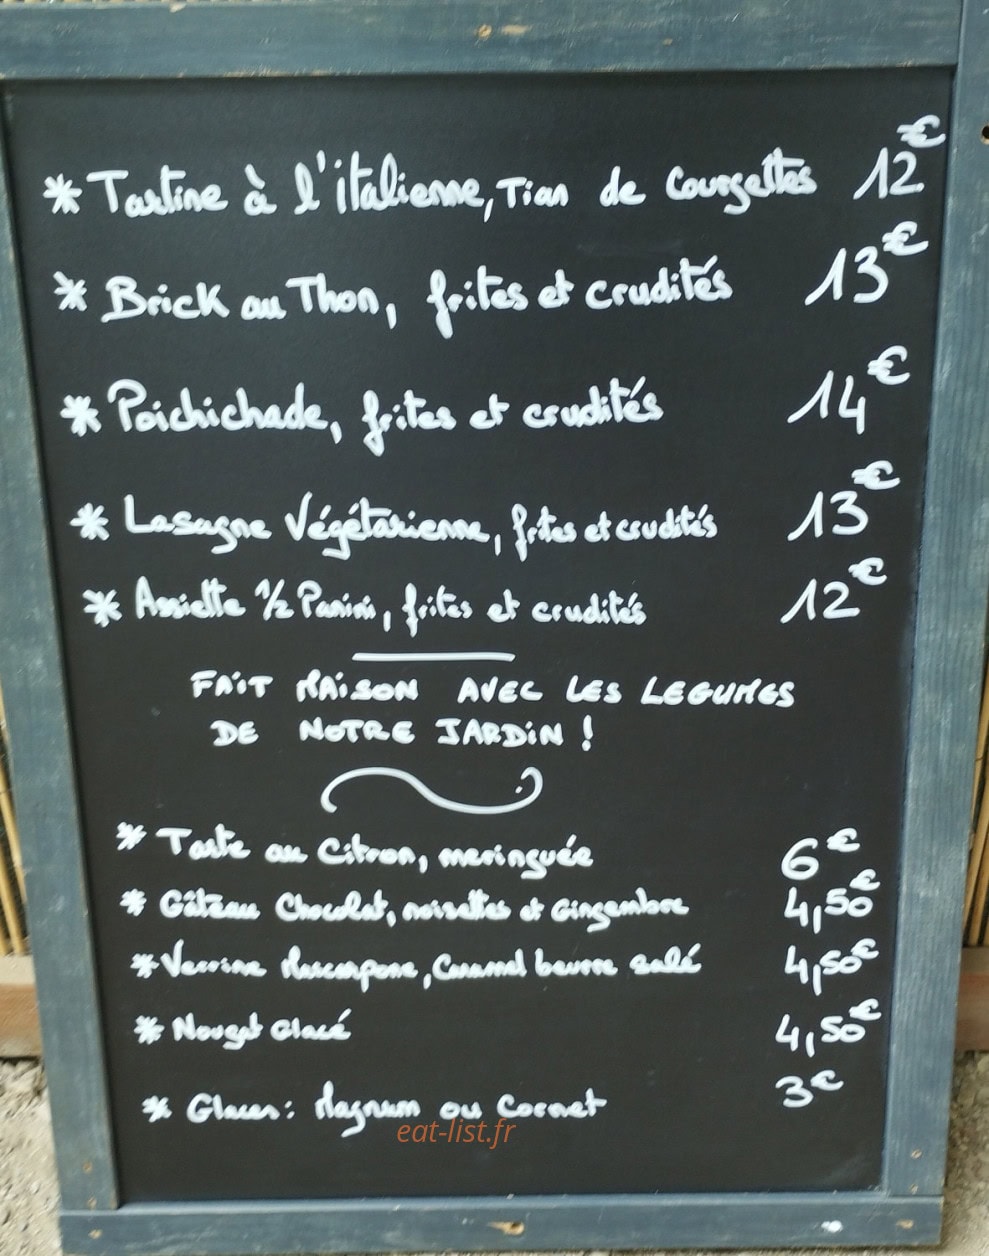 * Tartine à l'italienne, Tian de Courgettes 12€
* Brick au Thon, frites et crudités 13€
* Poichichade, frites et crudités 14€
* Lasagne Végétarienne, frites et crudités 13€
* Assiette 1/2 Panini, frites et crudités 12€
FAIT MAISON AVEC LES LEGUMES
DE NOTRE JARDIN !
* Tarte au Citron, meringuée 6€
* Gâteau Chocolat, noisettes et Gingembre 4,50€
* Verrine Mascarpone, Caramel beurre salé 4,50€
* Nougat Glacé 4,50€
* Glaces: Magnum ou Cornet 3€
eat-list.fr